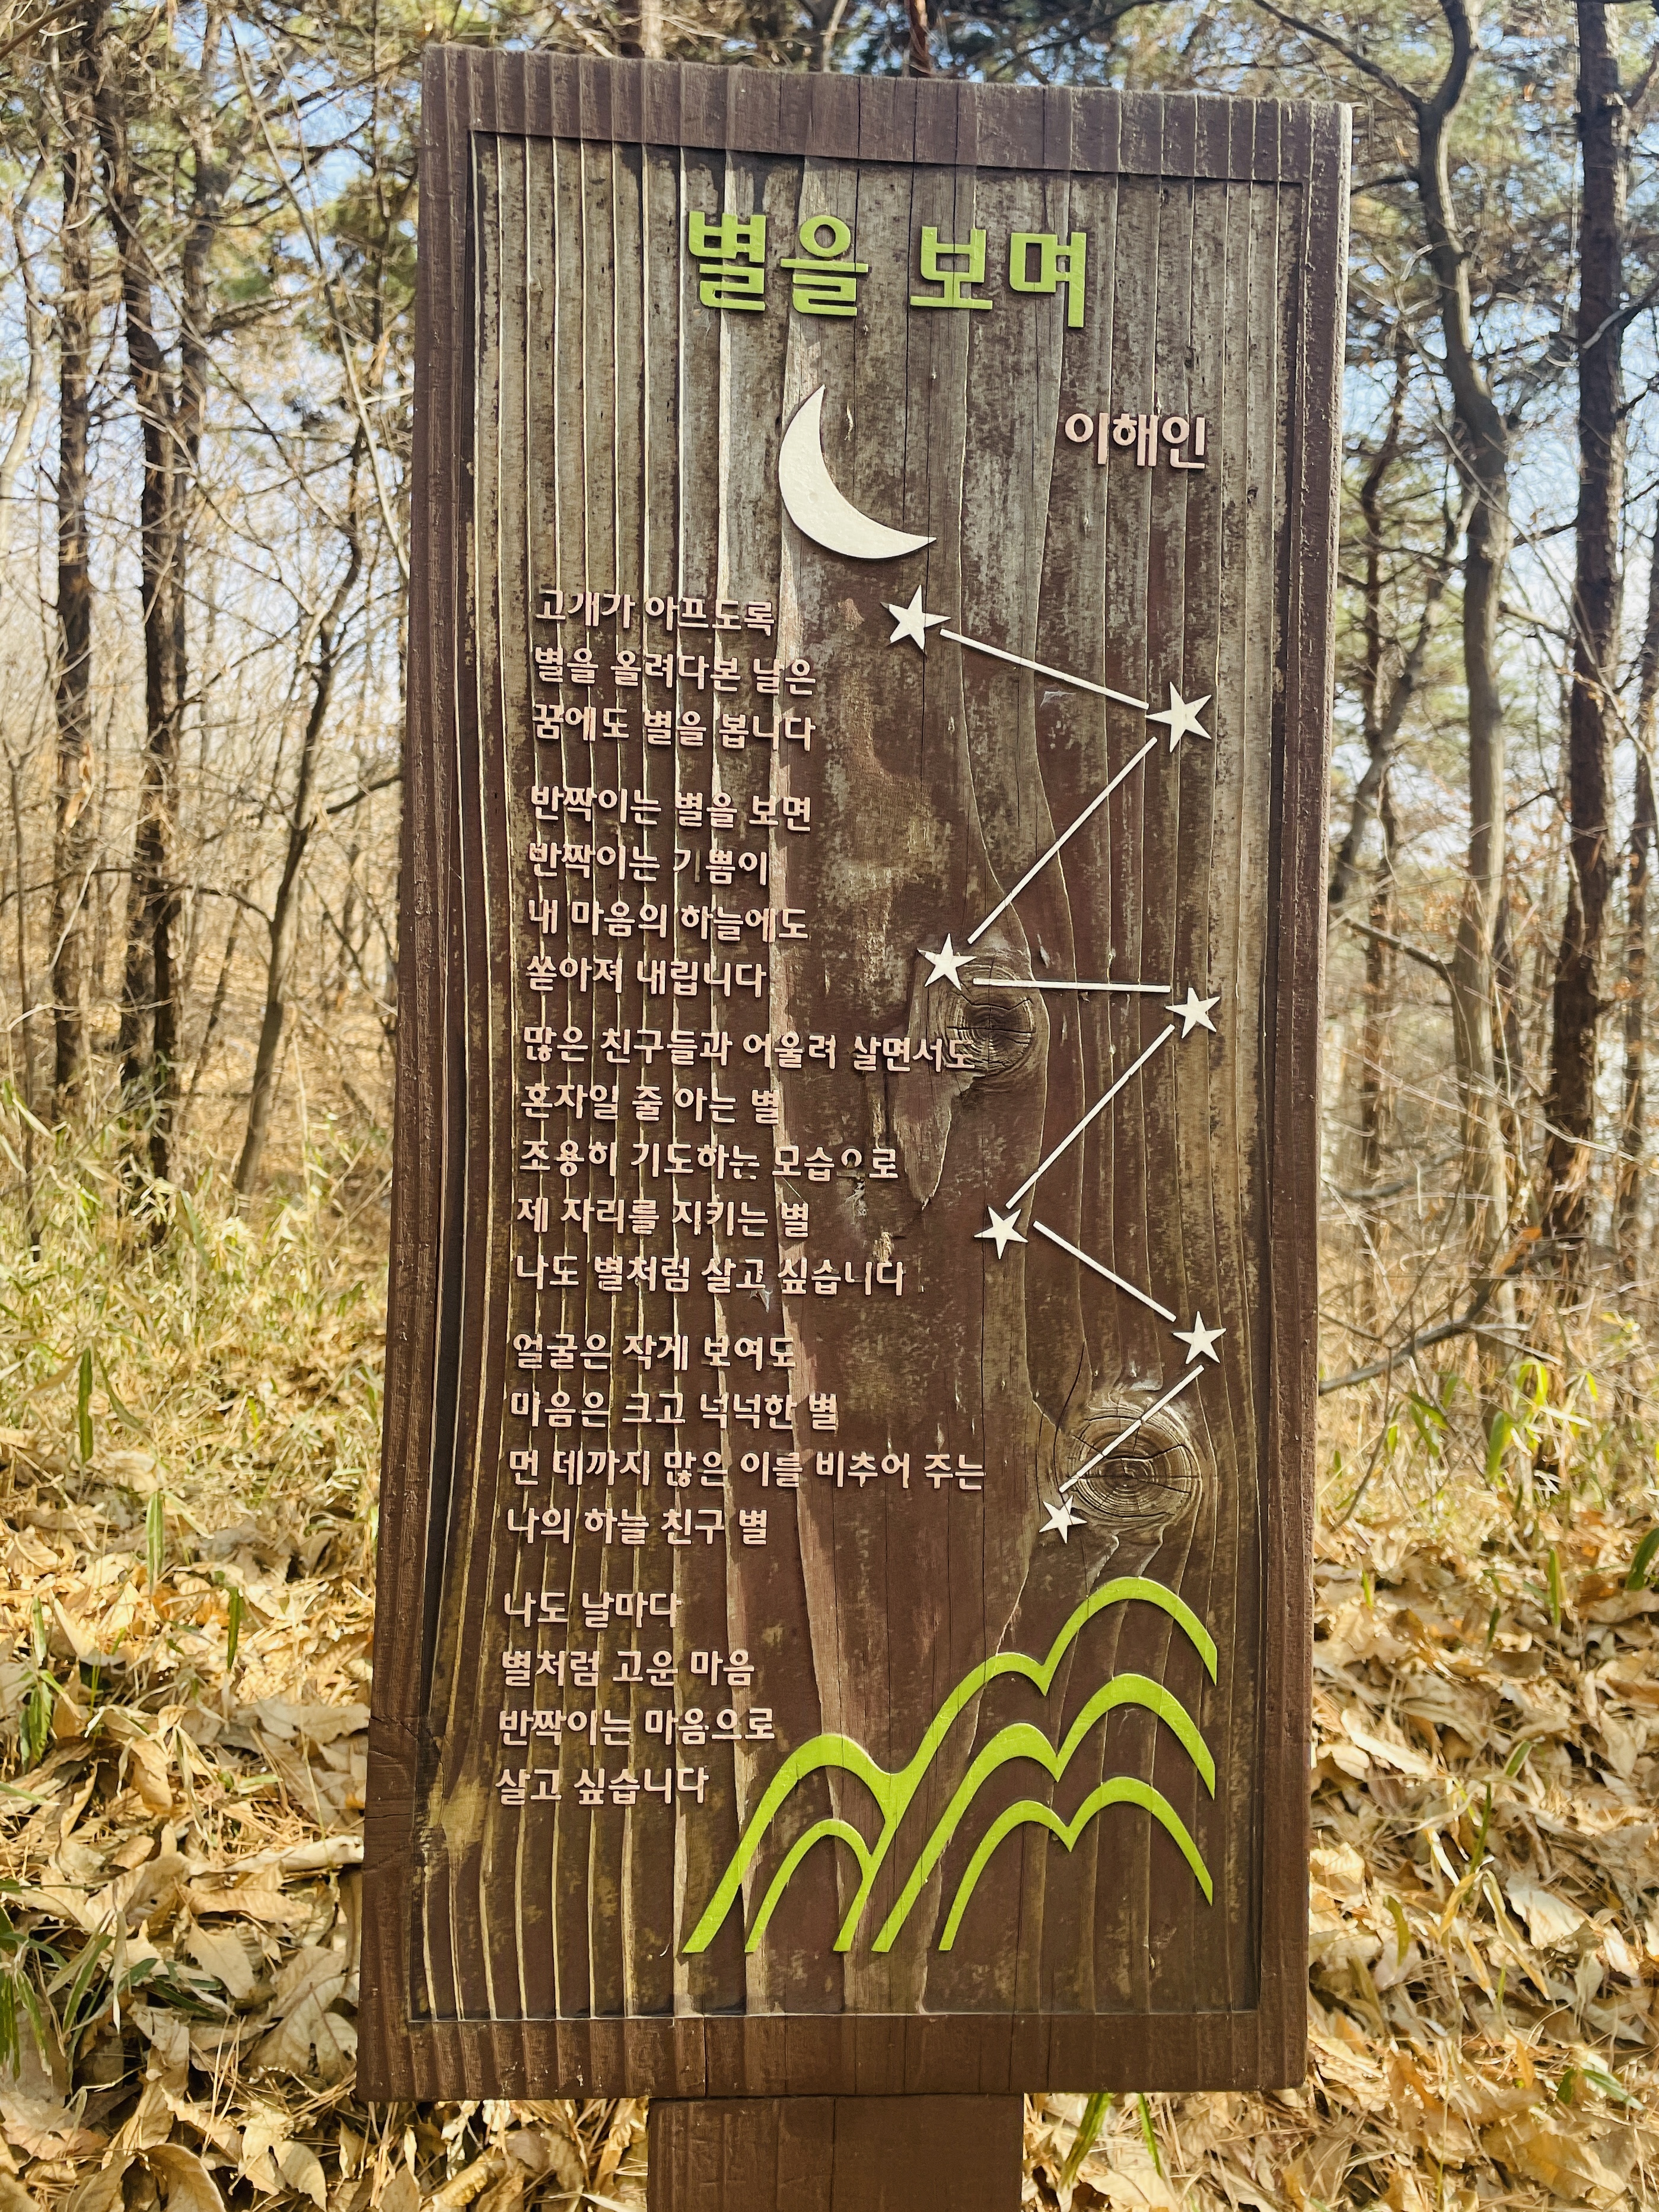 별을 보며
이해인
고개가 아프도록
별을 올려다본 날은
꿈에도 별을 봅니다
반짝이는 별을 보면
반짝이는 기쁨이
내 마음의 하늘에도
쏟아져 내립니다
많은 친구들과 어울려 살면서도
혼자일 줄 아는 별
조용히 기도하는 모습으로
제 자리를 지키는 별
나도 별처럼 살고 싶습니다
얼굴은 작게 보여도
마음은 크고 넉넉한 별
먼 데까지 많은 이를 비추어 주는
나의 하늘 친구 별
나도 날마다
별처럼 고운 마음
반짝이는 마음으로
살고 싶습니다